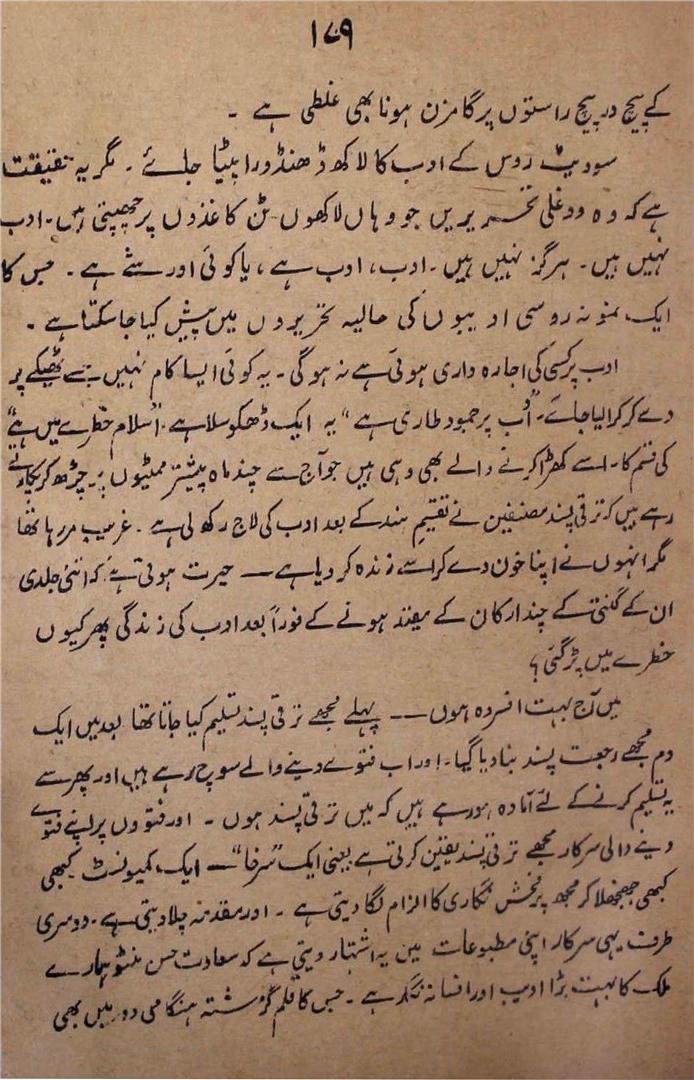 ۱۷۹
کے پیچ در پیچ راستوں پر گامزن ہونا بھی غلطی ہے ۔
سویٹ روس کے ادب کا لاکھ ڈھنڈورا پیٹا جائے ۔ مگر یہ حقیقت
ہے کہ وہ دوغلی تحریریں جو وہاں لاکھوں ٹن کاغذوں پر چھپتی ہیں ۔ ادب
نہیں ہیں ۔ ہرگز نہیں ہیں ۔ ادب ، ادب ہے ، یا کوئی اور شے ہے ۔ جس کا
ایک نمونہ روسی ادیبوں کی حالیہ تحریروں میں پیش کیا جا سکتا ہے ۔
ادب پر کسی کی اجارہ داری ہوئی ہے نہ ہو گی ۔ یہ کوئی ایسا کام نہیں جسے ٹھیکے پر
دے کر کرا لیا جائے ۔ "ادب پر جمود طاری ہے" یہ ایک ڈھکوسلا ہے ۔ "اسلام خطرے میں ہے"
کی قسم کا ۔ اسے کھڑا کرنے والے بھی وہی ہیں جو آج سے چند ماہ پیشتر ممٹیوں پر چڑھ کر پکارتے
رہے ہیں کہ ترقی پسند مصنفین نے تقسیم ہند کے بعد ادب کی لاج رکھ لی ہے ۔ غریب مر رہا تھا
مگر انہوں نے اپنا خون دے کر اسے زندہ کر دیا ہے — حیرت ہوتی ہے کہ اتنی جلدی
ان کے گنتی کے چند ارکان کے مقید ہونے کے فوراً بعد ادب کی زندگی پھر کیوں
خطرے میں پڑ گئی ؟
میں آج بہت افسردہ ہوں — پہلے مجھے ترقی پسند تسلیم کیا جاتا تھا بعد میں ایک
دم مجھے رجعت پسند بنا دیا گیا ۔ اور اب فتوے دینے والے سوچ رہے ہیں اور پھر سے
یہ تسلیم کرنے کے لئے آمادہ ہو رہے ہیں کہ میں ترقی پسند ہوں ۔ اور فتووں پر اپنے فتوے
دینے والی سرکار مجھے ترقی پسند یقین کرتی ہے یعنی ایک "سرخا" — ایک کمیونسٹ کبھی
کبھی جھنجھلا کر مجھ پر فحش نگاری کا الزام لگا دیتی ہے ۔ اور مقدمہ چلا دیتی ہے ۔ دوسری
طرف یہی سرکار اپنی مطبوعات میں یہ اشتہار دیتی ہے کہ سعادت حسن منٹو ہمارے
ملک کا بہت بڑا ادیب اور افسانہ نگار ہے ۔ جس کا قلم گزشتہ ہنگامی دور میں بھی